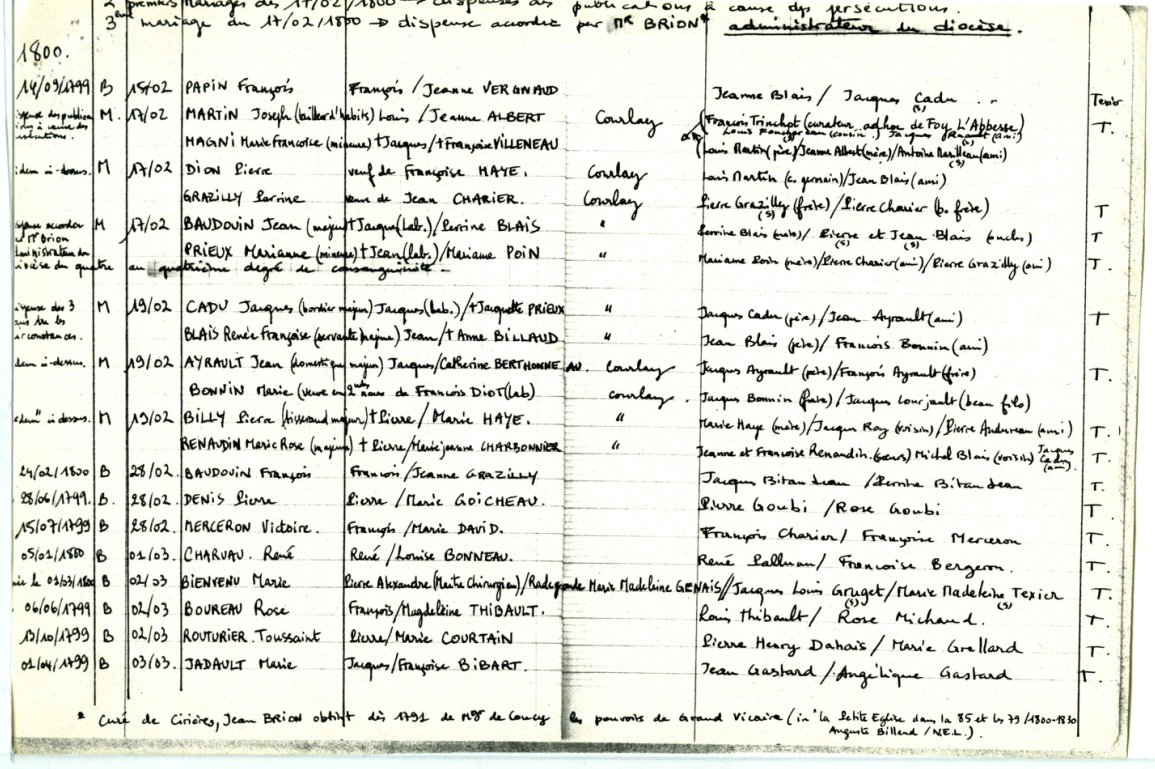 2 premiers mariages des 17/02/1800 → dispenses des publications à cause des persécutions.
3ème mariage du 17/02/1800 → dispense accordée par Mr BRION* administrateur du diocèse.
1800.
14/09/1799 B 15/02 PAPIN François François / Jeanne VERGNAUD Jeanne Blais / Jacques Cadu (s) Texier
M. 17/02 MARTIN Joseph (tailleur d'habits) Louis / Jeanne ALBERT Courlay (François Trinchot (curateur ad hoc de Foy L'Abbesse) T.
des publications à cause des
Louis (cousin) Jacques (ami)
MAGNI Marie Françoise (mineure) †Jacques/†Françoise VILLENEAU (Louis Martin (père)/Jeanne Albert (mère)/Antoine (ami) (s)
idem ci-dessus. M 17/02 DION Pierre veuf de Françoise HAYE. Courlay Louis Martin (c. germain)/Jean Blais (ami)
GRAZILLY Perrine veuve de Jean CHARIER. Courlay Pierre Grazilly (frère) (s) / Pierre Charier (b. frère) T
accordée M 17/02 BAUDOUIN Jean (majeur) †Jacques (Lab.)/Perrine BLAIS " Perrine Blais (mère)/ Pierre (s) et Jean (s) Blais (oncles) T
Mr Brion
administrateur du PRIEUX Marianne (mineure) †Jean (lab.)/Mariame POIN " Mariame Poin (mère)/Pierre Charier (ami)/Pierre Grazilly (ami) T.
diocèse du quatre au quatrième degré de consanguinité.
des 3 M 19/02 CADU Jacques (bordier majeur) Jacques (Lab.)/†Jacquette PRIEUX " Jacques Cadu (père)/Jean Ayrault (ami) T
circonstances. BLAIS Renée Françoise (servante majeure) Jean/†Anne BILLAUD " Jean Blais (père)/ François Bonnin (ami)
idem ci-dessus. M 19/02 AYRAULT Jean (domestique majeur) Jacques/Catherine BERTHONNEAU. Courlay Jacques Ayrault (père)/François Ayrault (frère) T.
BONNIN Marie (veuve en 2ndes noces de François DIOT (lab) Courlay. Jacques Bonnin (frère)/Jacques Courjault (beau fils)
idem ci dessus. M 19/02 BILLY Pierre (tisserand majeur) †Pierre / Marie HAYE. " Marie Haye (mère)/Jacques Roy (voisin)/Pierre Andureau (ami) T.
RENAUDIN Marie Rose (majeure) †Pierre/Marie jeanne CHARBONNIER " Jeanne et Françoise Renaudin (soeurs) Michel Blais (voisin) Jacques Cadu (ami). T.
24/02/1800 B 28/02 BAUDOUIN François François /Jeanne GRAZILLY Jacques Bitaudeau /Perrine Bitaudeau T.
28/06/1799. B. 28/02. DENIS Pierre Pierre /Marie GOICHEAU. Pierre Goubi /Rose Goubi T.
15/07/1799 B 28/02 MERCERON Victoire. François /Marie DAVID. François Charier/ Françoise Merceron T.
05/01/1800 B 01/03. CHARUAU René René /Louise BONNEAU. René / Françoise Bergeron. T.
née le 01/03/1800 B 02/03 BIENVENU Marie Pierre Alexandre (Maitre Chirurgien)/Radegonde Marie Madeleine GENAIS//Jacques Louis Gruget (s)/Marie Madeleine Texier (s) T.
06/06/1799 B 02/03 BOUREAU Rose François/Magdeleine THIBAULT. Louis Thibault/ Rose Michaud. T.
13/10/1799 B 02/03 ROUTURIER Toussaint Pierre/Marie COURTAIN Pierre Henry Dahais / Marie Grellard T.
01/04/1799 B 03/03. JADAULT Marie Jacques/Françoise BIBART. Jean Gastard / Angélique Gastard T.
* Curé de Cirières, Jean BRION obtint dès 1791 de Mgr de Coucy les pouvoirs de Grand Vicaire (in "La Petite Eglise dans la 85 et les 79 /1800-1830
Auguste Billaud /N.E.L.).